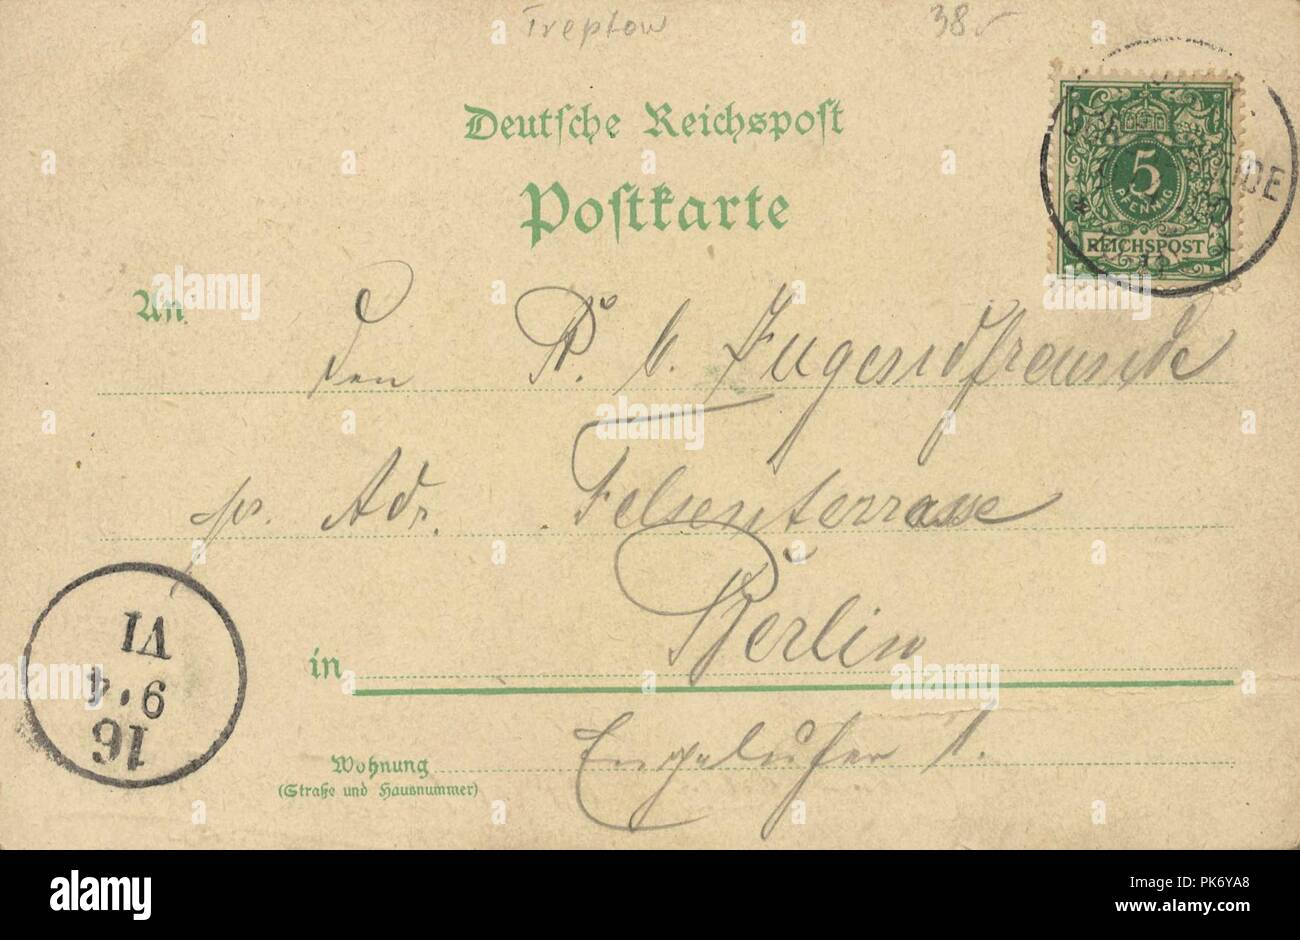 Treptow 38
Deutsche Reichspost
Postkarte
5
PFENNIG
REICHSPOST
IDE
An:
Den R. C. Jugendfreunde
pr. Adr. Felsenterrasse
in Berlin
Wohnung Engelufer 1.
(Straße und Hausnummer)
16
9.4
VI
alamy
Image ID: PK6YA8
www.alamy.com